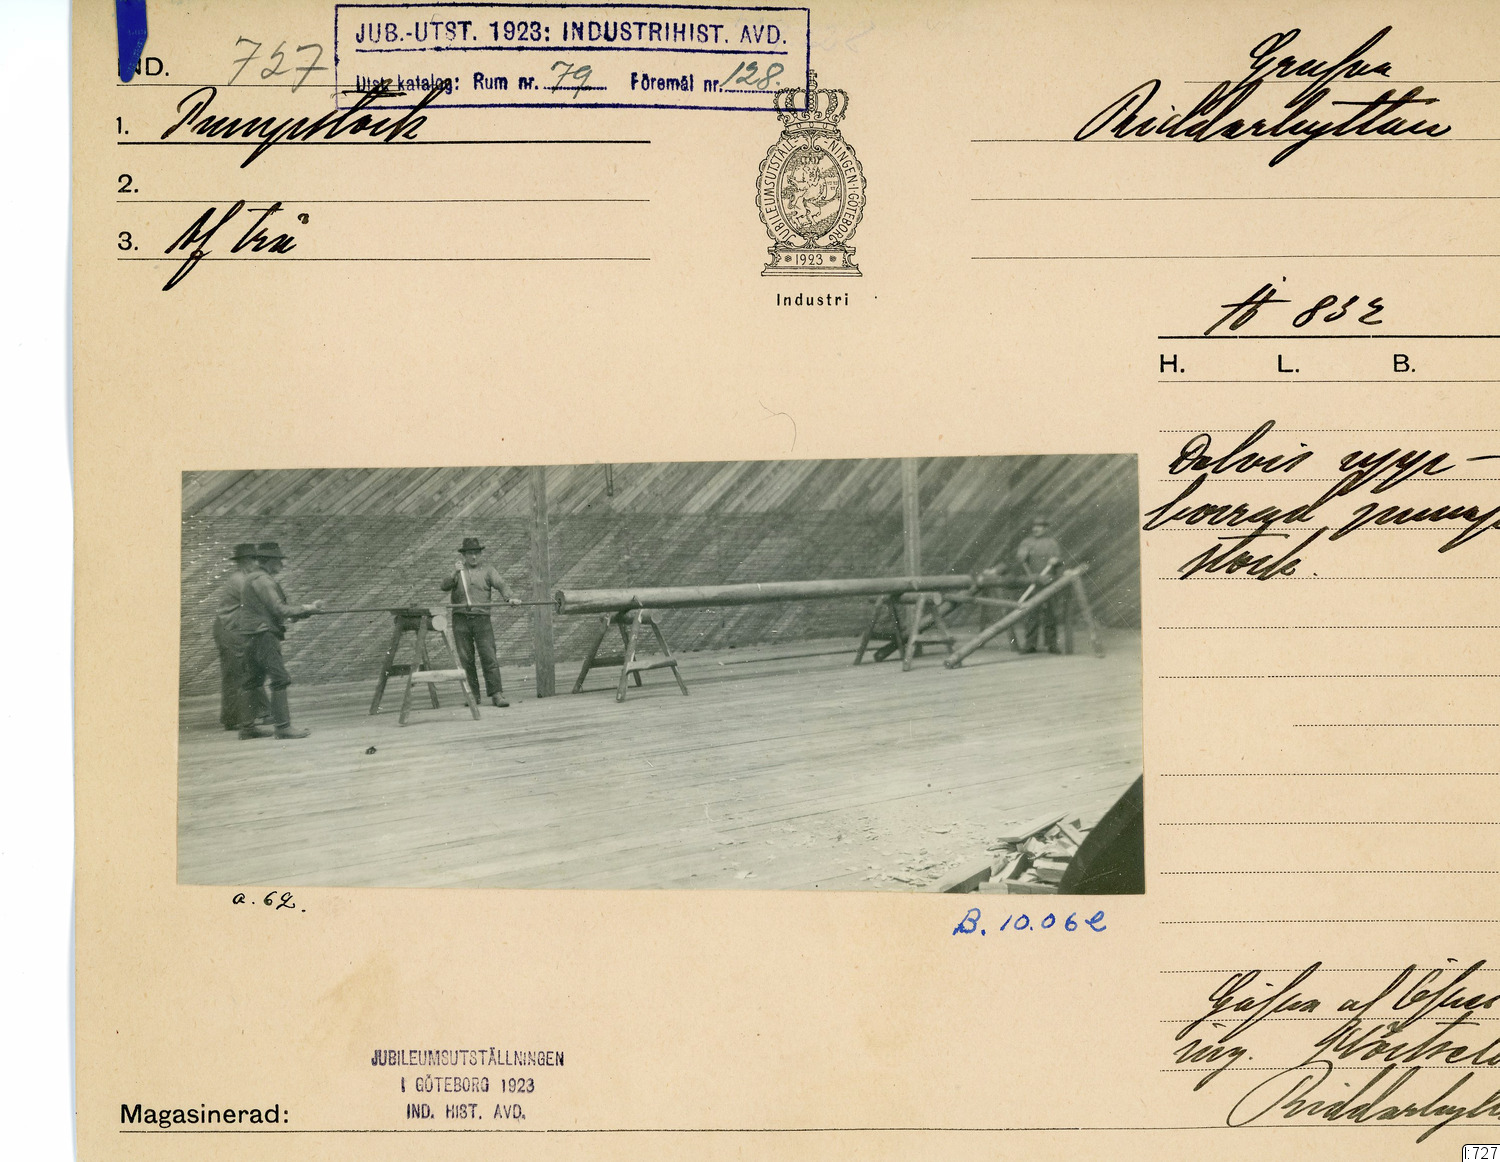 IND. 727
JUB.-UTST. 1923: INDUSTRIHIST. AVD.
Utst. katalog: Rum nr. 79 Föremål nr. 128.
1. Pumpstock
2.
3. Af trä
JUBILEUMSUTSTÄLLNINGEN·I·GÖTEBORG
1923
Industri
Grufva
Riddarhyttan
832
H. L. B.
Delvis upp-
borrad pump
stock.
a. 62.
B. 10.062
Gåfva af Öfver
ing.
Riddarhytt
JUBILEUMSUTSTÄLLNINGEN
I GÖTEBORG 1923
IND. HIST. AVD.
Magasinerad:
I:727